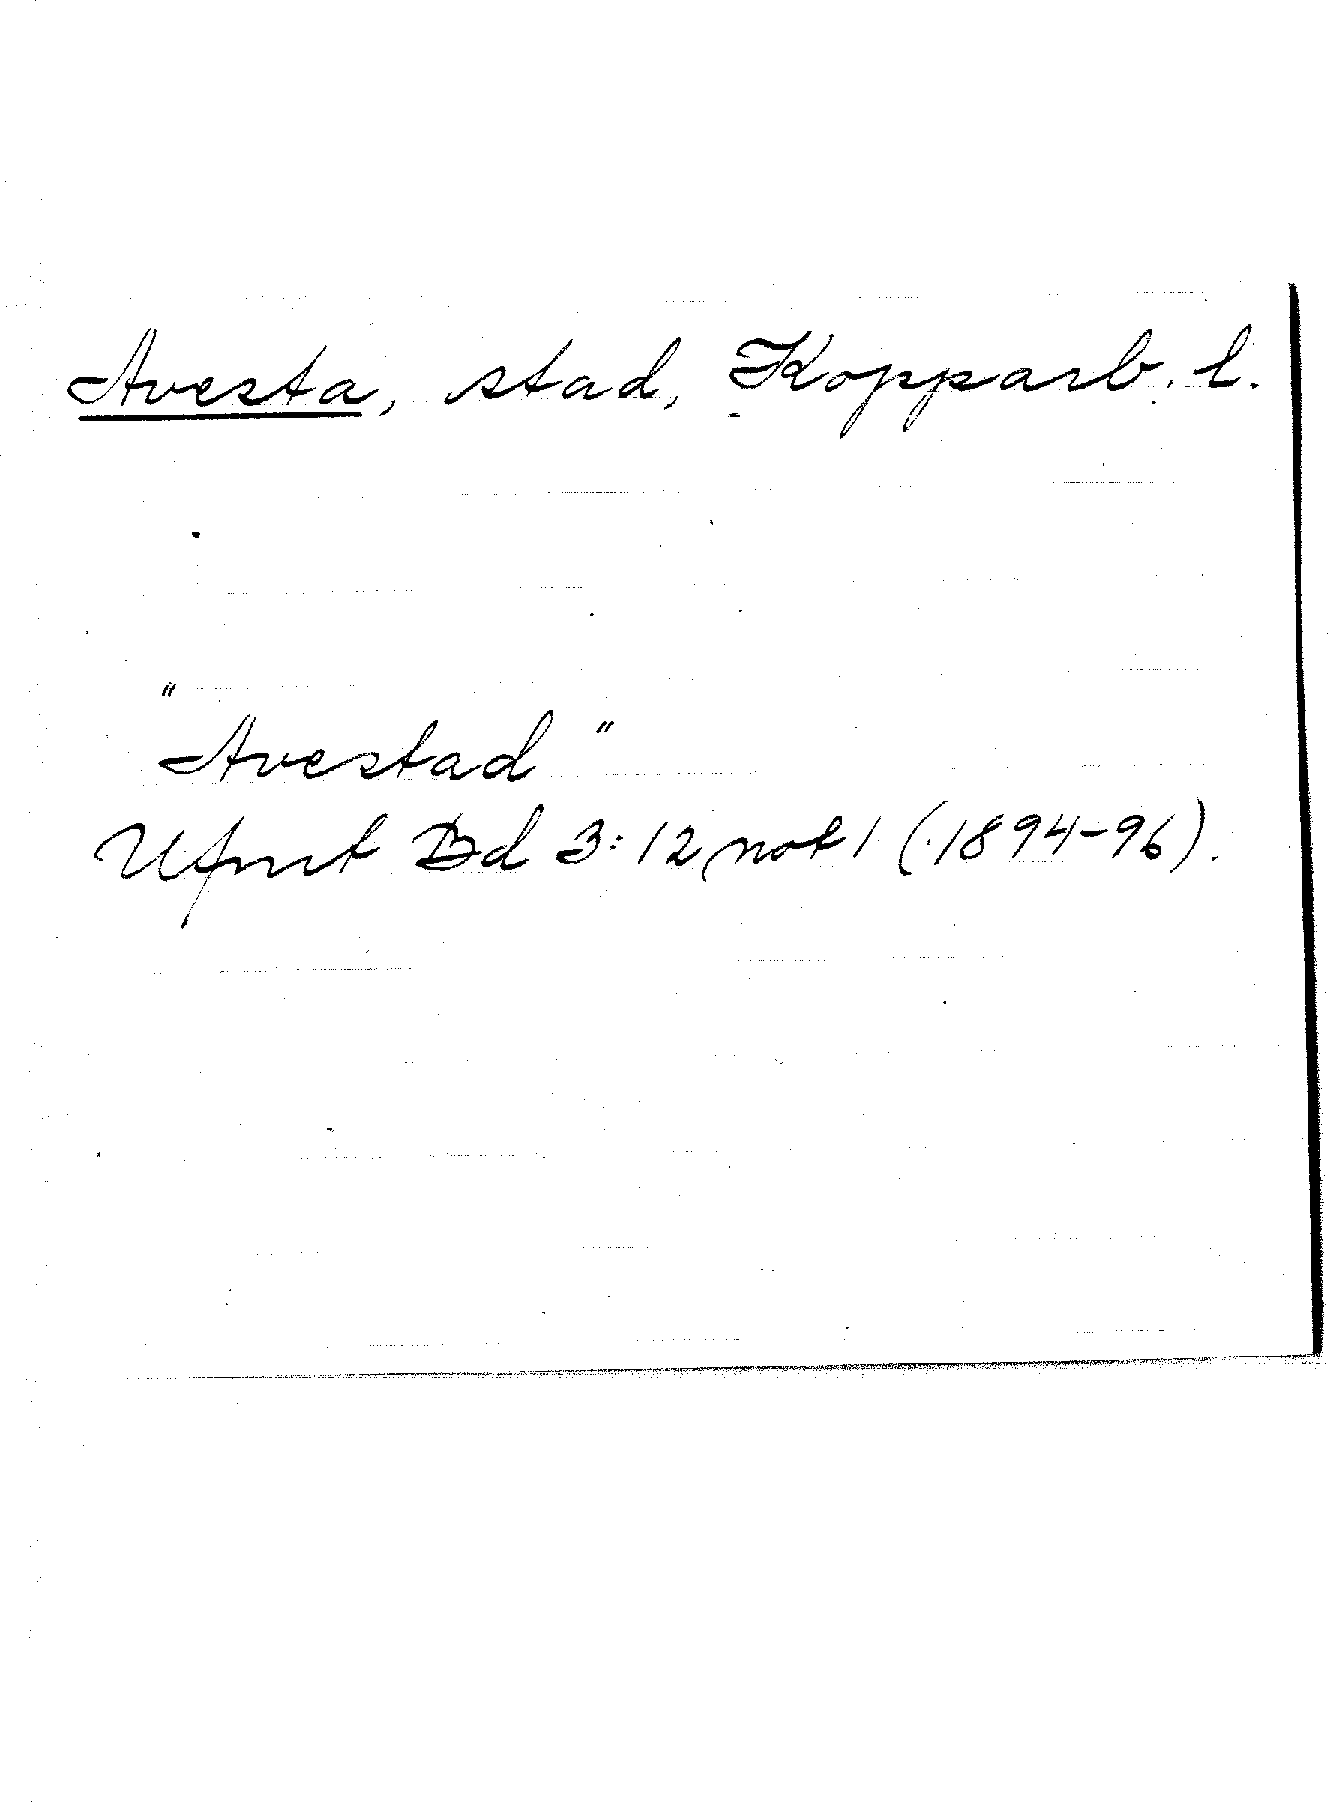 Avesta, stad, Kopparb. l.
"Avestad"
Ufmt Bd 3:12 not 1 (1894-96).